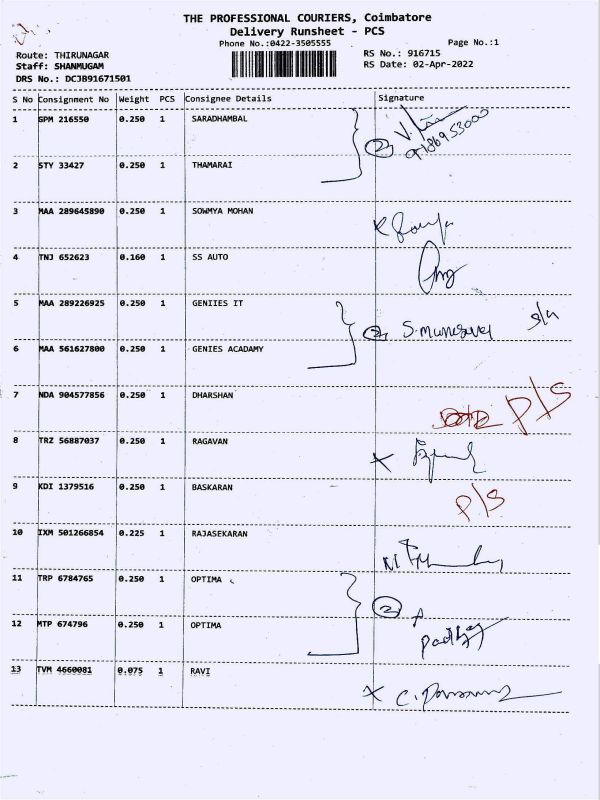 THE PROFESSIONAL COURIERS, Coimbatore
Delivery Runsheet - PCS
Phone No.:0422-3505555
Page No.:1
Route: THIRUNAGAR
RS No.: 916715
Staff: SHANMUGAM
RS Date: 02-Apr-2022
DRS No.: DCJB91671501
S No Consignment No Weight PCS Consignee Details Signature
1 GPM 216550 0.250 1 SARADHAMBAL
2
2 STY 33427 0.250 1 THAMARAI
3 MAA 289645890 0.250 1 SOWMYA MOHAN
4 TNJ 652623 0.160 1 SS AUTO
5 MAA 289226925 0.250 1 GENIIES IT
2
6 MAA 561627800 0.250 1 GENIES ACADAMY
7 NDA 904577856 0.250 1 DHARSHAN
P/S
8 TRZ 56887037 0.250 1 RAGAVAN
9 KDI 1379516 0.250 1 BASKARAN
P/S
10 IXM 501266854 0.225 1 RAJASEKARAN
11 TRP 6784765 0.250 1 OPTIMA
2
12 MTP 674796 0.250 1 OPTIMA
13 TVM 4660081 0.075 1 RAVI